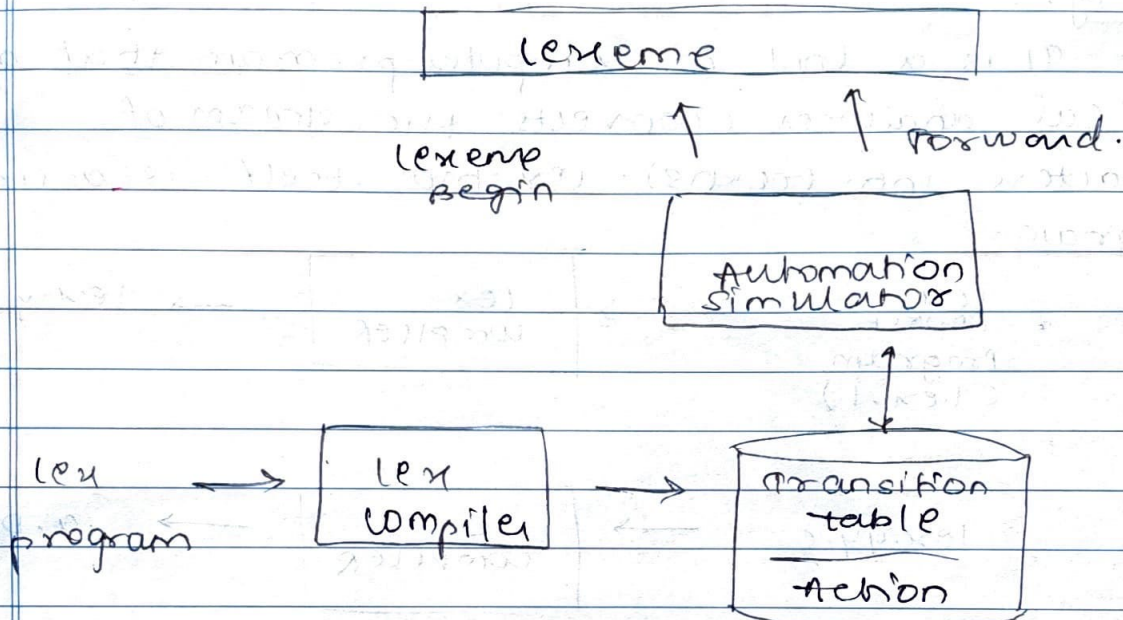 lexeme
lexeme
Begin
Forward.
Automation
simulator
lex
program
lex
compiler
Transition
table
Action